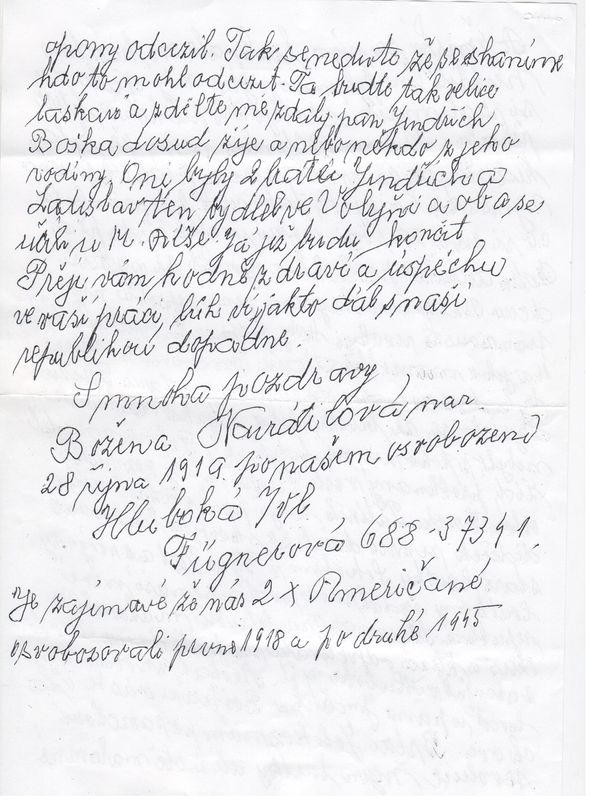 opony odcizil. Tak se nedivte že se sháníme
kdo to mohl odcizit. Ta budte tak velice
laskav a zdělte mě zdaly pan Jindřich
Boška dosud žije a nebo někdo z jeho
rodiny. Oni byly 2 bratři Jindřich a
Ladislav ten bydlel ve Volyni a oba se
učili u M. Alže. Já již budu končit
Přeji vám hodně zdraví a úspěchu
ve vaši práci, bůh ví jakto dál s naší
republikou dopadne.
S mnoha pozdravy
Božena Kurátilová nar.
28 října 1919. po našem osvobození
Hluboká /Vl
Fügnerová 688-37341.
Je zajímavé že nás 2 x Američané
osvobozovali prvně 1918 a po druhé 1945